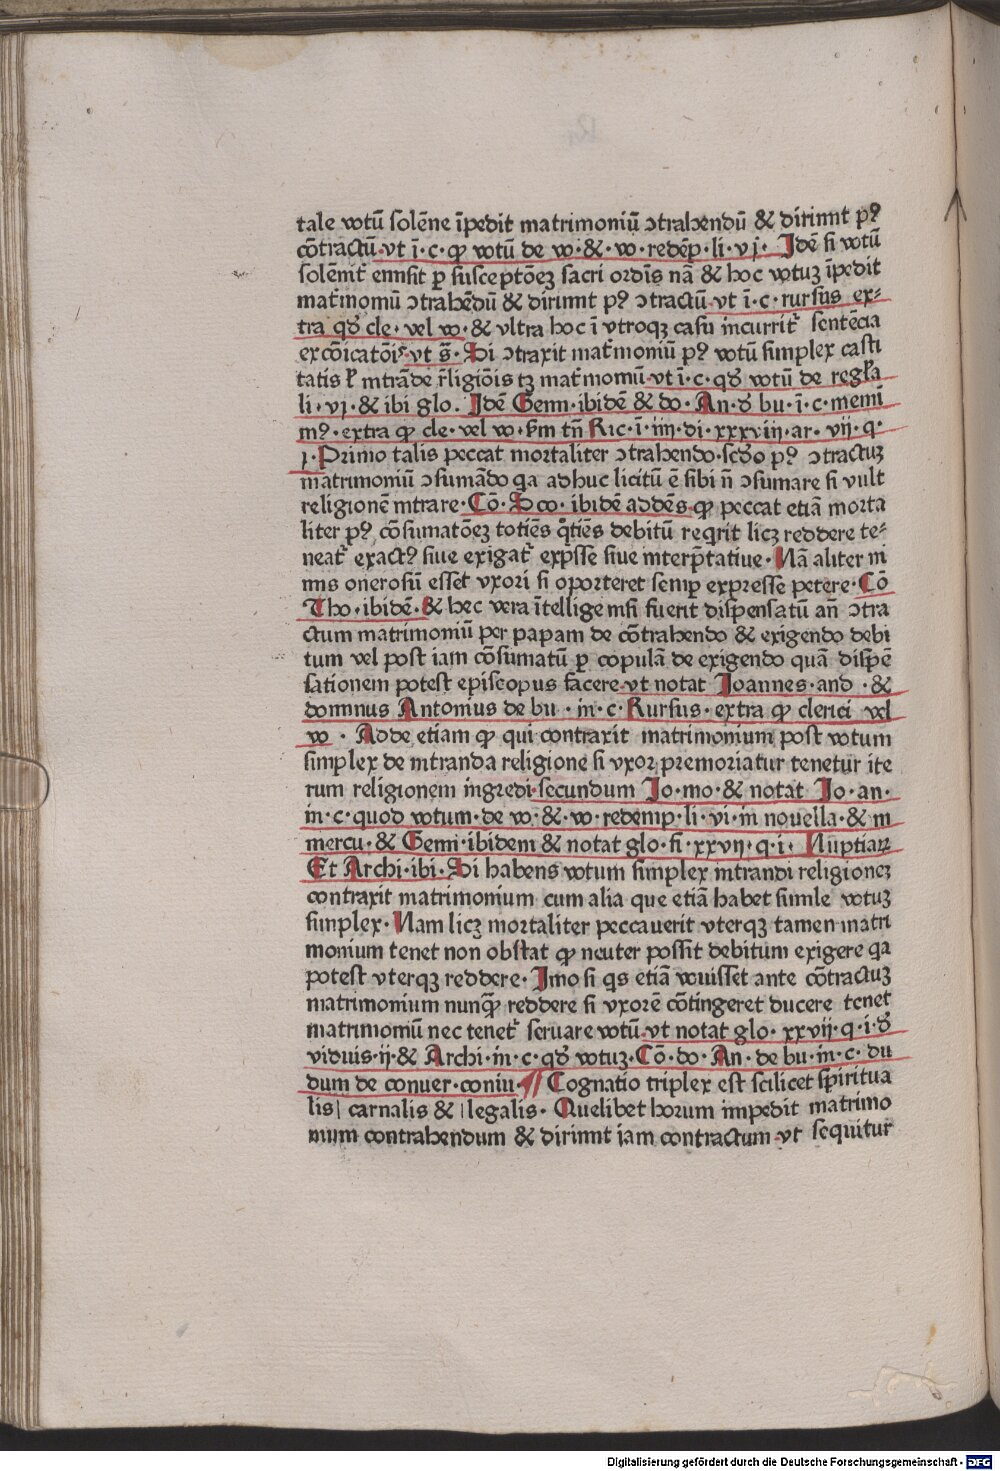 tale votū solēne īpedit matrimoniū ɔtrahendū & dirimit pꝰ
cōtractū·vt ī·c·ꝙ votū de vo·&·vo·redēp·li·vj· Idē si votū
solēnit̛ emisit p susceptōeꝫ sacri ordīs nā & hoc votuꝫ īpedit
mat̛moniū ɔtrahēdū & dirimit pꝰ ɔtractū·vt ī·c·rursus ex⸗
tra qđ cle·vel vo·& vltra hoc ī vtroqꝫ casu incurrit̛ sentēcia
excōicatōis·vt s̄·Si ɔtraxit mat̛moniū pꝰ votū simplex casti
tatis ł intrāde r̄ligiōis tꝫ mat̛moniū·vt ī·c·qđ votū de regła
li·vj·& ibi glo. Idē Gemi·ibidē & do·An·đ bu·ī·c·memi
mꝰ·extra ꝙ cle·vel vo·ẜm tn̄ Ric·ī·iiij·di·xxxviij·ar·vij·q·
j·Primo talis peccat mortaliter ɔtrahendo·scđo pꝰ ɔtractuꝫ
matrimoniū ɔsumādo qa adhuc licitū ē sibi n̄ ɔsumare si vult
religionē intrare·Cō·Sco·ibidē addēs·ꝙ peccat etiā morta
liter pꝰ cōsumatōeꝫ totiēs q̄tiēs debitū reqrit licꝫ reddere te⸗
neat̛ exactꝰ siue exigat̛ exp̄sse siue interp̄tatiue·Nā aliter ni
mis onerosū esset vxori si oporteret semp expresse petere·Cō
Tho·ibidē·& hec vera ītellige nisi fuerit dispensatū an̄ ɔtra
ctum matrimoniū per papam de cōtrahendo & exigendo debi
tum vel post iam cōsumatū p copulā de exigendo quā dispē
sationem potest episcopus facere·vt notat Joannes·and·&
dominus Antonius de bu·in·c·Rursus·extra ꝙ clerici vel
vo·Adde etiam ꝙ qui contraxit matrimonium post votum
simplex de intranda religione si vxor premoriatur tenetur ite
rum religionem ingredi·secundum Jo·mo·& notat Jo·an·
in·c·quod votum·de vo·&·vo·redemp·li·vi·in nouella·& in
mercu·& Gemi·ibidem & notat glo·fi·xxvij·q·i·Nuptiaꝝ
Et Archi·ibi·Si habens votum simplex intrandi religioneꝫ
contraxit matrimonium cum alia que etiā habet simile votuꝫ
simplex·Nam licꝫ mortaliter peccauerit vterqꝫ tamen matri
monium tenet non obstat ꝙ neuter possit debitum exigere qa
potest vterqꝫ reddere·Imo si qs etiā vouisset ante cōtractuꝫ
matrimonium nunq̄ reddere si vxorē cōtingeret ducere tenet
matrimoniū nec tenet̛ seruare votū·vt notat glo·xxvij·q·i·đ
viduis·ij·& Archi·in·c·qđ votuꝫ·Cō·do·An·de bu·in·c·du
dum de conuer·coniu·¶ Cognatio triplex est scilicet spiritua
lis| carnalis & |legalis·Quelibet horum impedit matrimo
nium contrahendum & dirimit iam contractum·vt sequitur
Digitalisierung gefördert durch die Deutsche Forschungsgemeinschaft - DFG